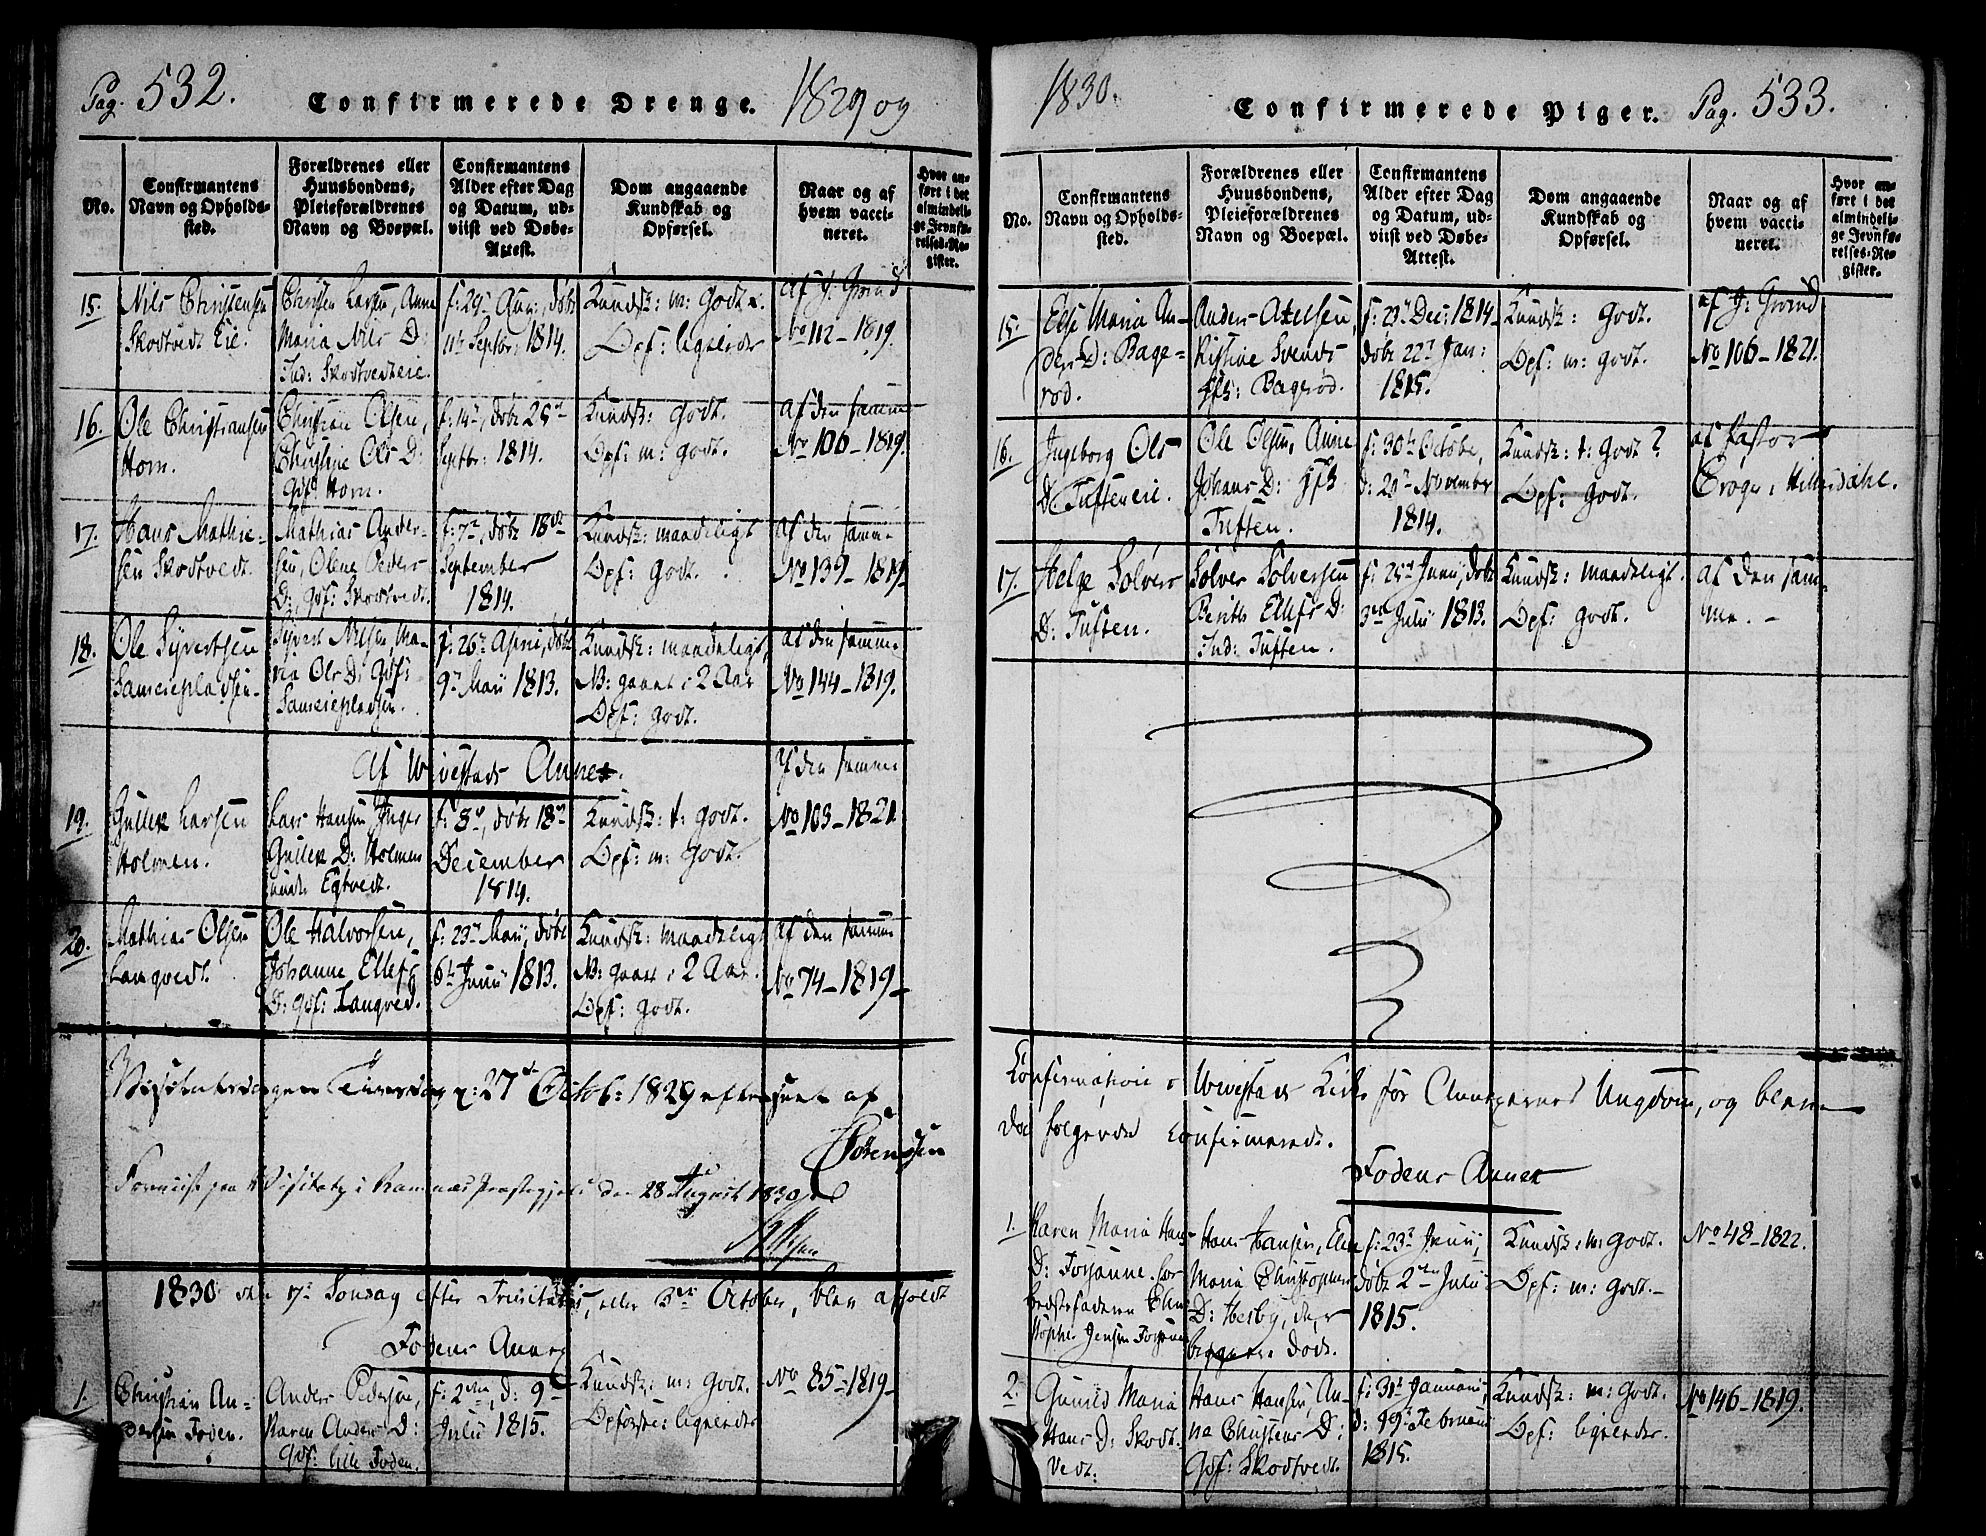 Pag. 532.
Confirmerede Drenge. 1829 og
No.
Confirmantens Navn og Opholdssted.
Forældrenes eller Huusbondens, Pleieforældrenes Navn og Boepæl.
Confirmantens Alder efter Dag og Datum, udviist ved Døbe-Attest.
Dom angaaende Kundskab og Opførsel.
Naar og af hvem vaccineret.
Hvor anført i det almindelige Jevnførelses-Register.
15.
Nils Christensen
Skodtvedt Eie.
Christen Larsen, Anne
Maria Nils D:
Ind: Skodtvedteie.
f: 29de Aug:, døbt
11te Septbr: 1814.
Kundsk: m: godt.
Opf: lignende
af J. Grand
No 112-1819.
16.
Ole Christiansen
Horn.
Christian Olsen,
Christine Ols D:
Gdf: Horn.
f: 14de, døbt 25de
Septbr: 1814.
Kundsk: godt.
Opf: m: godt.
af den samme
No 106-1819.
17.
Hans Mathie-
sen Skodtvedt.
Mathias Ander-
sen, Olene Peders
D:, Gdf: Skodtvedt.
f: 7de, døbt 18de
September
1814.
Kundsk: maadeligt
Opf: godt.
af den samme
No 139-1819
18.
Ole Syvertsen
Sameiepladsen.
Syvert Nilsen, Ma-
ria Ols D: Gdf:
Sameiepladsen.
f: 26de April, døbt
9de Maii 1813.
Kundsk: maadeligt,
NB: gaaet i 2 Aar
Opf: godt.
af den samme
No 144-1819.
Af Wivestads Annex.
19.
Gullek Larsen
Holmen.
Lars Hansen Inger
Gullek D: Holmen
under Egtvedt.
f: 8de, døbt 18de
December
1814.
Kundsk: t: godt.
Opf: m: godt.
af den samme
No 103-1821
20.
Mathias Olsen
Langvedt.
Ole Halvorsen,
Johanne Ellefs
D: Gdf: Langved.
f: 23de Maii, døbt
6te Junii 1813.
Kundsk: maadeligt
NB: gaaet i 2 Aar.
Opf: godt.
af den samme
No 74-1819
Visitatsdagen Tirsdag d: 27de Octob: 1829 efterseet af
Sørenssen
Foreviist paa Visitats i Ramnæs Præstegjeld den 28 August 1830
1830 den 17de Søndag efter Trinitatis, eller 3de October, blev afholdt
Fodens Annex
1.
Christian An-
dersen Foden.
Anders Pedersen,
Karen Anders D:
Gdf: lille Foden.
f: 2den, d: 9de
Julii 1815.
Kundsk: m: godt.
Opførsel: lignende
No 85-1819
1830.
Confirmerede Piger. Pag. 533.
No.
Confirmantens Navn og Opholdssted.
Forældrenes eller Huusbondens, Pleieforældrenes Navn og Boepæl.
Confirmantens Alder efter Dag og Datum, udviist ved Døbe-Attest.
Dom angaaende Kundskab og Opførsel.
Naar og af hvem vaccineret.
Hvor anført i det almindelige Jevnførelses-Register.
15.
Else Maria An-
ders D: Bage-
rød.
Anders Axelsen,
Kistine Svends
Bagerød.
f: 29de Dec: 1814
døbt 22de Jan:
1815.
Kundsk: godt.
Opf: m: godt.
af J: Grand
No 106-1821.
16.
Ingeborg Ols
D: Tufteneie.
Ole Olsen, Anne
Johans D:
Tuften.
f: 30te October,
d: 20de November
1814.
Kundsk: t: godt?
Opf: godt.
af Pastor
Crøger i Hitterdahl.
17.
Helge Solvers
D: Tuften.
Solver Solversen
Berith Ellefs D:
Ind: Tuften.
f: 25de Junii, døbt
3die Julii 1813.
Kundsk: maadeligt.
Opf: godt.
af den sam-
me.
Confirmation i Wivestads Kirke for Annexernes Ungdom, og bleve
da følgende confirmerede.
Fodens Annex
1.
Karen Maria Hans
D: Forsanne. hos
bedstefaderen Chri-
stopher Jensen
Hans Hansen, Ellen
Maria Christophers
D: Hesby, de, er
begge døde.
f: 23de Junii,
døbt 2den Julii
1815.
Kundsk: m: godt.
Opf: m: godt.
No 48-1822.
2.
Gunild Maria
Hans D: Skodt-
vedt:
Hans Hansen, An-
na Christens D:
Gdf: Skodtvedt.
f: 31te Januarii,
d: 19de Februarii
1815.
Kundsk: m: godt.
Opf: lignende.
No 146-1819.